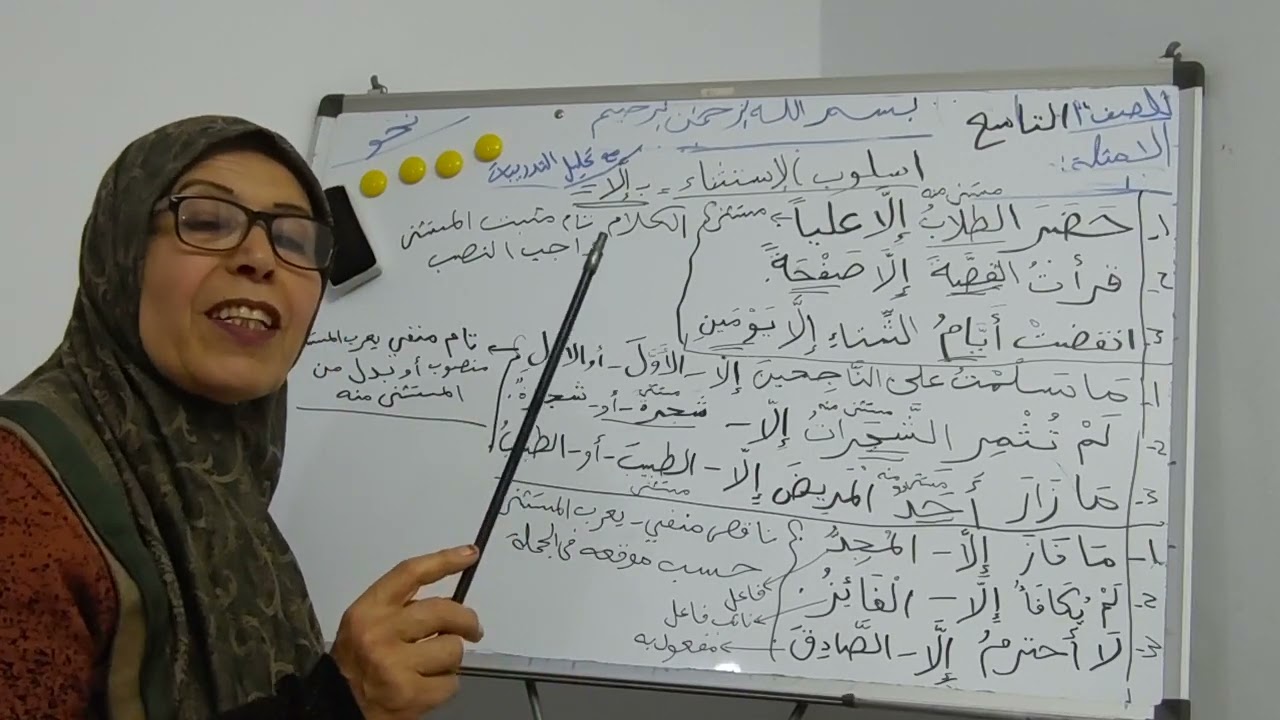 للصف التاسع بسم الله الرحمن الرحيم نحو
الامثلة: مع تحليل التدريبات
اسلوب الإستثناء بـ إلا
مستثنى منه
1- حَضَرَ الطلابُ إلّا علياً مستثنى
2- قرأتُ القصَّةَ إلَّا صَفْحَةً.
3- انقضتْ أيَّامُ الشِّتاء إلَّا يَوْمَينِ
الكلام تام مثبت المستثنى
واجب النصب
1- مَا سَلَّمْتُ على النَّاجِحينَ إلّا - الأوَّلَ - أو الاولِ
مستثنى منه مستثنى
2- لَمْ تُثْمِرِ الشَّجَراتُ إلّا - شجرةً - أو - شجرةٌ.
مستثنى منه
3- مَا زَارَ أحَدٌ المَريضَ إلّا - الطبيبَ - أو - الطبيبُ
مستثنى
تام منفي يعرب المست
منصوب أو بدل من
المستثنى منه
1- مَا فَازَ إلَّا - المُجِدُّ
2- لَمْ يُكَافَأْ إلّا - الْفَائِزُ.
3- لَا أحترمُ إلَّا - الصَّادِقَ
ناقص منفي - يعرب المستثنى
حسب موقعه في الجملة
فاعل
نائب فاعل
مفعول به